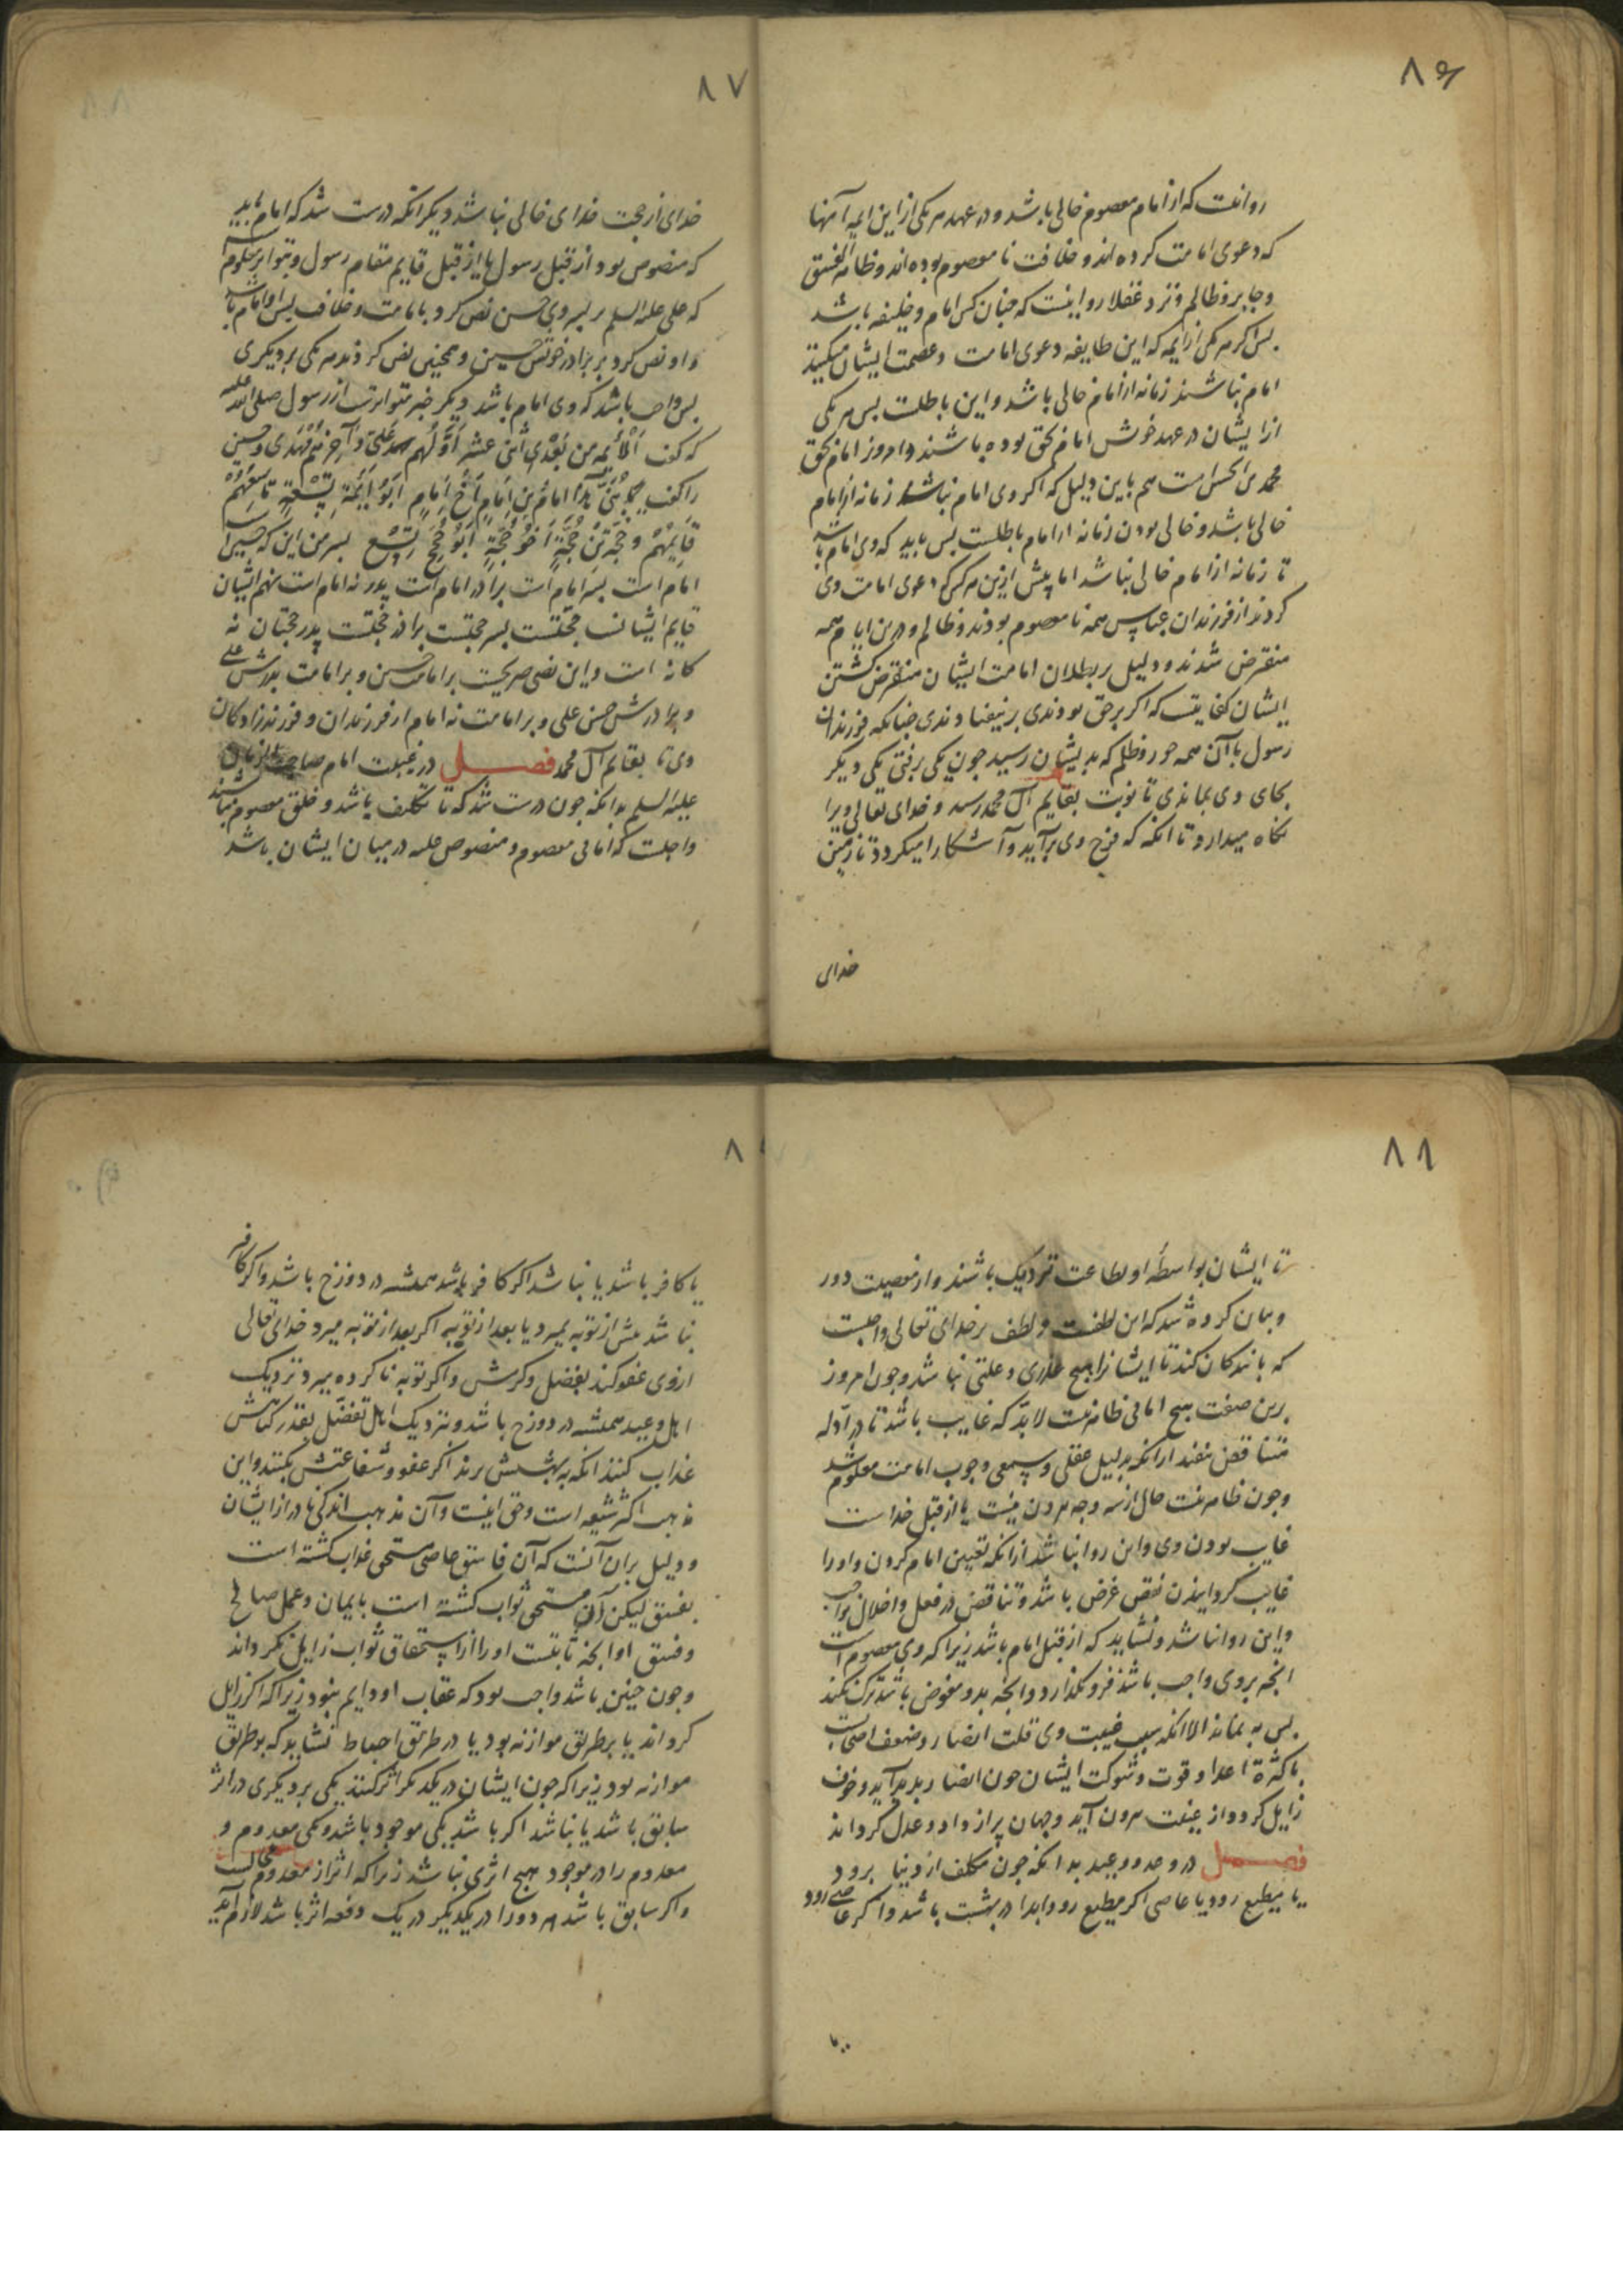 ۸۶
روانیست که از امام معصوم خالی باشد و در عهد هر یکی ازین ایمه آنها
که دعوی امامت کرده اند و خلافت نا معصوم بوده اند و ظاهر الفسق
و جایر و ظالم و نزد عقلا روا نیست که چنان کس امام و خلیفه باشد
بس اکر هر یکی از ایمه که این طایفه دعوی امامت و عصمت ایشان میکنند
امام نباشند زمانه از امام خالی باشد و این باطلست بس هر یکی
ازایشان در عهد خوش امام بحق بوده باشند و امروز امام بحق
محمد بن الحسن است هم باین دلیل که اکر وی امام نباشد زمانه از امام
خالی باشد و خالی بودن زمانه از امام باطلست بس باید که وی امام باشد
تا زمانه از امام خالی نباشد اما پیش ازین هر کس که دعوی امامت وی
کردند از فرزندان عباس همه نا معصوم بودند و ظالم و درین ایام همه
منقرض شدند و دلیل بر بطلان امامت ایشان منقرض کشتن
ایشان کفایتست که اکر بر حق بودندی بر نیفتادندی چنانکه فرزندان
رسول با آن همه جور و ظلم که بدیشان رسید چون یکی برفتی یکی دیکر
بجای وی بماندی تا نوبت بقایم آل محمد رسد و خدای تعالی ویرا
نکاه میدارد تا انکه که فرج وی برآید و آشکارا میکردد تا زمین
خدای
۸۷
خدای از حجت خدای خالی نباشد دیکر انکه درست شد که امام باید
که منصوص بود از قبل رسول یا از قبل قایم مقام رسول و بتواتر معلومست
که علی علیه السلم بر پسر وی حسن نص کرد بامامت و خلافت بس او امام باشد
و او نص کرد بر برادر خوش حسین و همچنین نص کردند هر یکی بر دیکری
بس واجب باشد که وی امام باشد دیکر خبر متواترست از رسول صلی الله علیه
که کفت اَلْأَئِمه من بَعْدِی اثنی عشر اَوَّلُهم علی و آخرهم مهدی و حسین
را کفت هَذَا امامٌ بن اِمَامٍ اَخُ اِمَامٍ اَبُو اَئِمَةٍ تِسْعَةٍ تَاسِعُهُم
قَایِمُهُمْ و حُجَّةٌ بْنُ حُجَّةٍ اَخُو حُجَّةٍ اَبُو حُجَجٍ تِسْعٍ بسر من این که حسین است
امام است بسر امام است برادر امام است پدر نه امام است نهم ایشان
قایم ایشانست حجتست بسر حجتست برادر حجتست پدر حجتان نه
کانه است و این نصی صریحست بر امامت حسن و بر امامت پدرش علی
و برادرش حسن علی و بر امامت نه امام از فرزندان و فرزندزادکان
وی تا بقایم آل محمد فصل در غیبت امام صاحب الزمان
علیه السلم بدانکه چون درست شد که تا تکلیف باشد و خلق معصوم نباشند
واجبست که امامی معصوم و منصوص علیه در میان ایشان باشد
۸۸
تا ایشان بواسطهٔ او بطاعت نزدیک باشند و از معصیت دور
و بیان کرده شد که این لطفست و لطف بر خدای تعالی واجبست
که با بندکان کند تا ایشانرا هیچ عذری و علتی نباشد و چون امروز
برین صفت هیچ امامی ظاهر نیست لابد که غایب باشد تا در ادله
تناقض نیفتد از انکه بدلیل عقلی و سمعی وجوب امامت معلوم شد
و چون ظاهر نیست حال از سه وجه بیرون نیست یا از قبل خداست
غایب بودن وی و این روا نباشد از انکه تعیین امام کردن و او را
غایب کردانیدن نقض غرض باشد و تناقض در فعل و اخلال بواجب
و این روا نباشد و نشاید که از قبل امام باشد زیرا که وی معصوم است
انچه بر وی واجب باشد فرو نکذارد و انچه بدو مفوض باشد ترک نکند
بس به نماند الا انکه سبب غیبت وی قلت انصار و ضعف احبابست
با کثرة اعدا و قوت و شوکت ایشان چون انصار بدید آید و خوف
زایل کردد از غیبت بیرون آید و جهان پر از داد و عدل کرداند
فصل در وعد و وعید بدانکه چون مکلف از دنیا برود
یا مطیع رود یا عاصی اکر مطیع رود ابدا در بهشت باشد و اکر عاصی رود
یا
۸
یا کافر باشد یا نباشد اکر کافر باشد همیشه در دوزخ باشد و اکر کافر
نباشد پیش از توبه میرد یا بعد از توبه اکر بعد از توبه میرد خدای تعالی
ازوی عفو کند بفضل و کرمش و اکر توبه ناکرده میرد نزدیک
اهل وعید همیشه در دوزخ باشد و نزدیک اهل تفضّل بقدر کناهش
عذاب کنند انکه به بهشتش برند اکر عفو و شفاعتش نکنند و این
مذهب اکثر شیعه است و حق اینست و آن مذهب اندکی نادر از ایشان
و دلیل بران آنست که آن فاسق عاصی مستحق عذاب کشته است
بفسق لیکن آن مستحق ثواب کشته است بایمان و عمل صالح
و فسق او انچه ثابتست او را از استحقاق ثواب زایل نکرداند
و چون چنین باشد واجب بود که عقاب او دایم نبود زیرا که اکر زایل
کرداند یا بر طریق موازنه بود یا در طریق احباط نشاید که بر طریق
موازنه بود زیرا که چون ایشان در یکدیکر اثر کنند یکی بر دیکری در اثر
سابق باشد یا نباشد اکر باشد یکی موجود باشد و یکی معدوم و
معدوم را در موجود هیچ اثری نباشد زیرا که اثر از معدوم محالست
و اکر سابق باشد هر دو را در یکدیکر در یک دفعه اثر باشد لازم آید